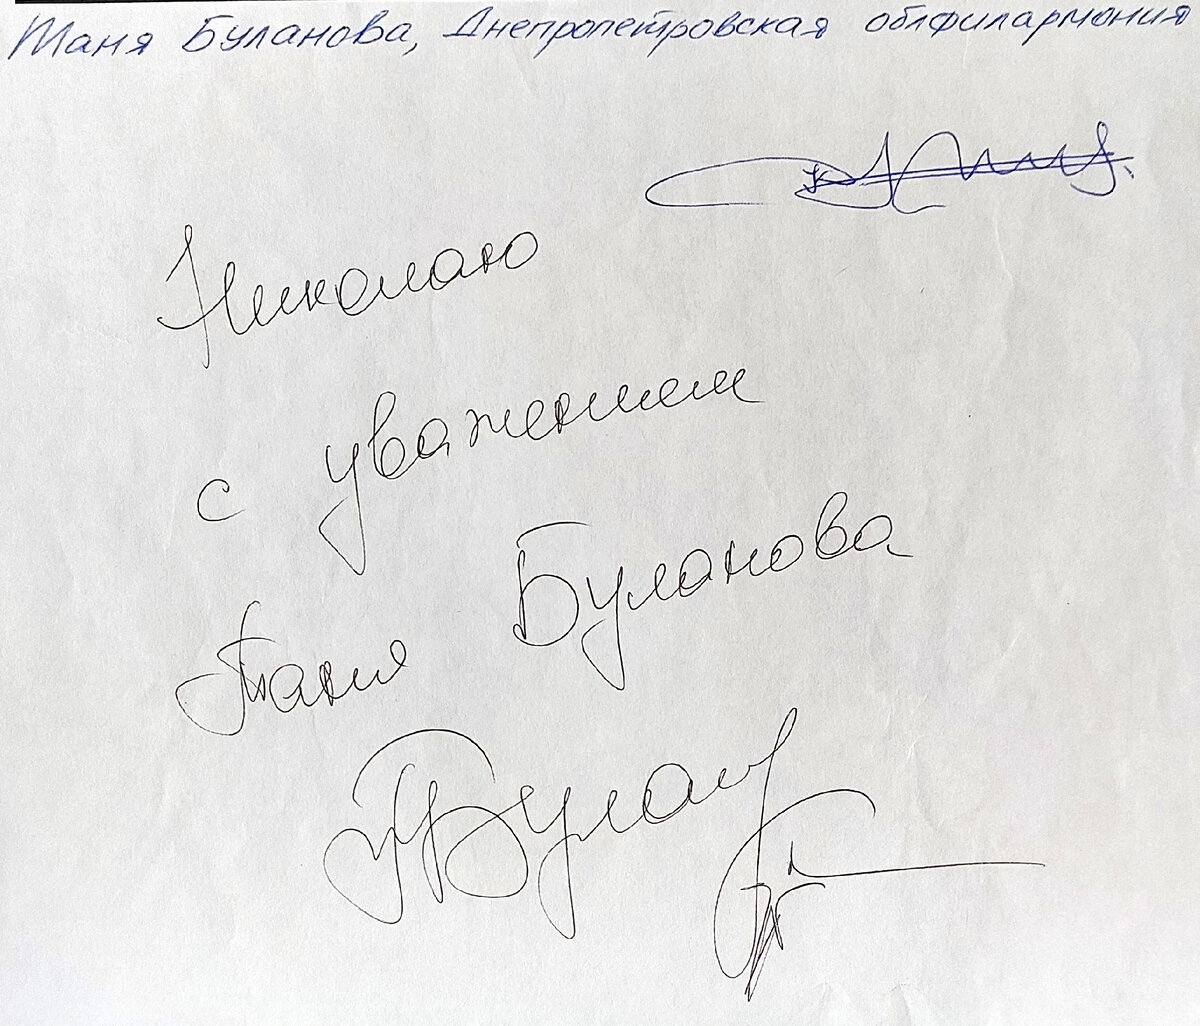 Таня Буланова, Днепропетровская облфилармония
Николаю
с уважением
Таня Буланова